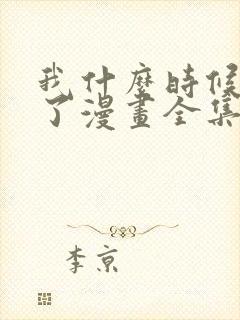 我什麼時候
了漫畫全集
李京